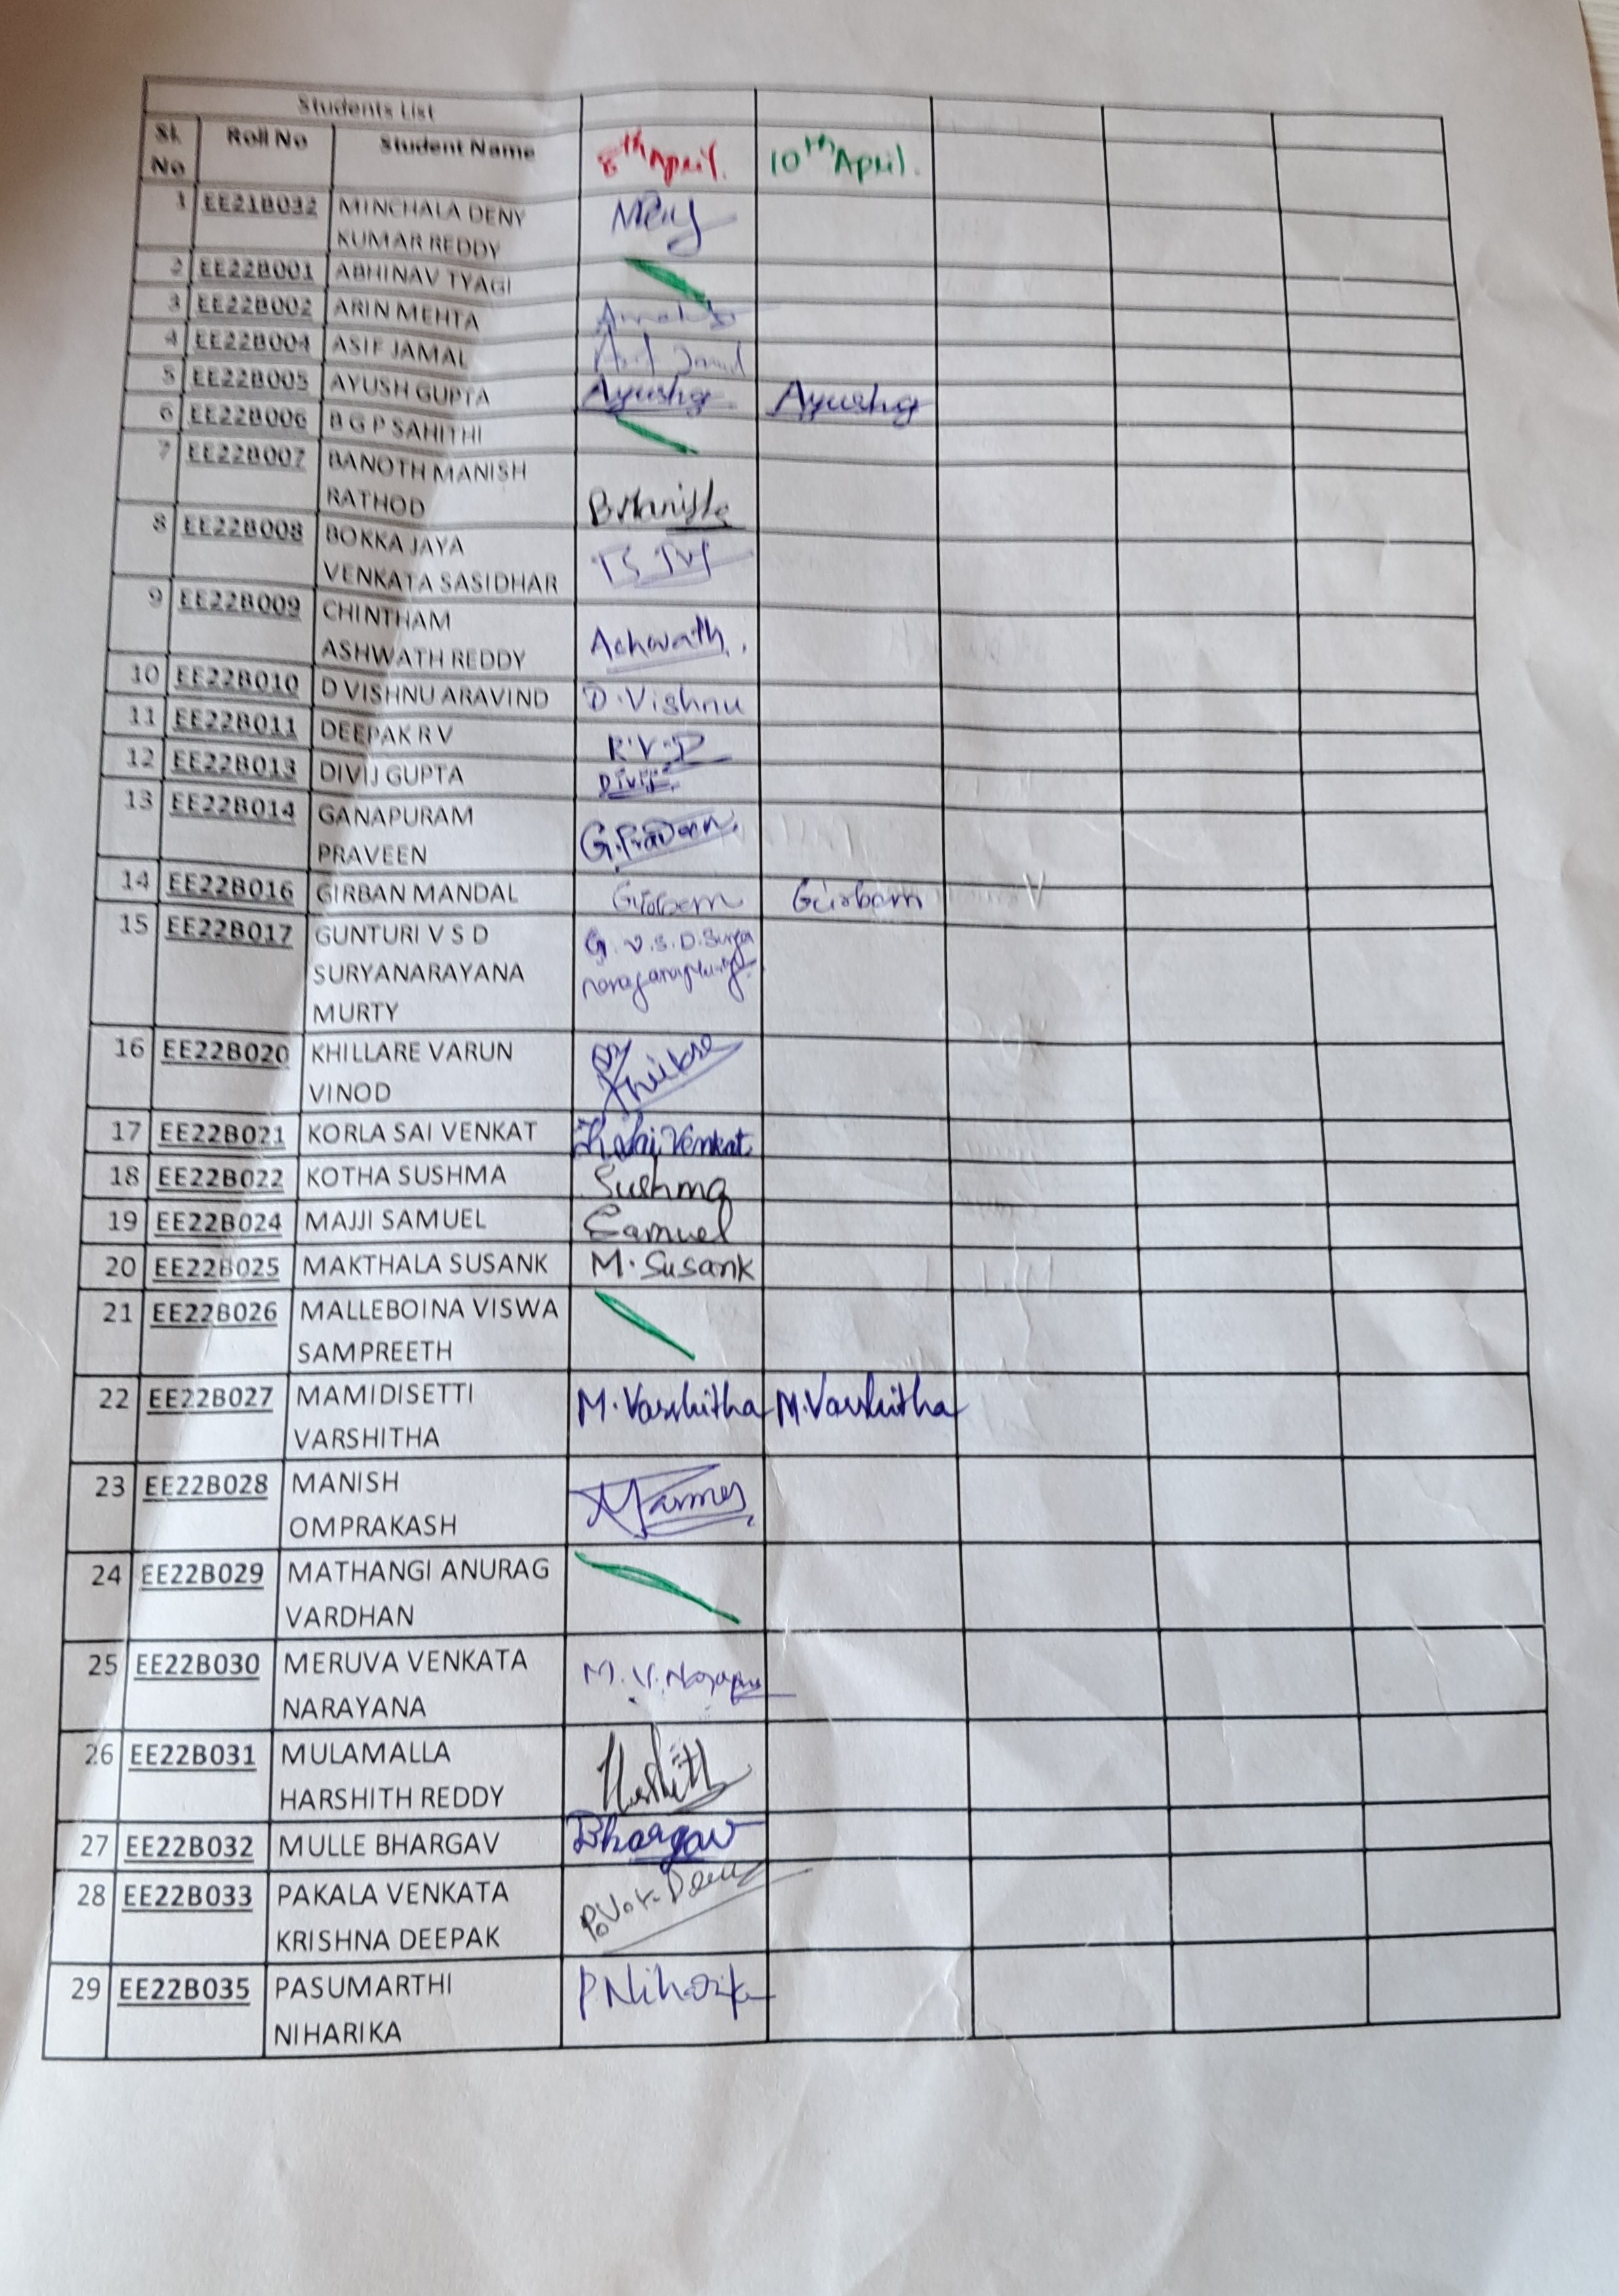 Students List
Sl. No Roll No Student Name 8th April. 10th April.
1 EE21B032 MINCHALA DENY
KUMAR REDDY
2 EE22B001 ABHINAV TYAGI
3 EE22B002 ARIN MEHTA
4 EE22B004 ASIF JAMAL Asif Jamal
5 EE22B005 AYUSH GUPTA Ayushg Ayushg
6 EE22B006 B G P SAHITHI
7 EE22B007 BANOTH MANISH
RATHOD B.Manish
8 EE22B008 BOKKA JAYA
VENKATA SASIDHAR
9 EE22B009 CHINTHAM
ASHWATH REDDY Ashwath
10 EE22B010 D VISHNU ARAVIND D.Vishnu
11 EE22B011 DEEPAK R V R.V.D
12 EE22B013 DIVIJ GUPTA Divij
13 EE22B014 GANAPURAM
PRAVEEN G.Praveen
14 EE22B016 GIRBAN MANDAL Girban Girban
15 EE22B017 GUNTURI V S D G.V.S.D.Surya
SURYANARAYANA
MURTY
16 EE22B020 KHILLARE VARUN
VINOD
17 EE22B021 KORLA SAI VENKAT K.Sai Venkat
18 EE22B022 KOTHA SUSHMA Sushma
19 EE22B024 MAJJI SAMUEL Samuel
20 EE22B025 MAKTHALA SUSANK M.Susank
21 EE22B026 MALLEBOINA VISWA
SAMPREETH
22 EE22B027 MAMIDISETTI M.Varshitha M.Varshitha
VARSHITHA
23 EE22B028 MANISH
OMPRAKASH
24 EE22B029 MATHANGI ANURAG
VARDHAN
25 EE22B030 MERUVA VENKATA M.V.Narayana
NARAYANA
26 EE22B031 MULAMALLA Harshith
HARSHITH REDDY
27 EE22B032 MULLE BHARGAV Bhargav
28 EE22B033 PAKALA VENKATA
KRISHNA DEEPAK
29 EE22B035 PASUMARTHI P Niharika
NIHARIKA